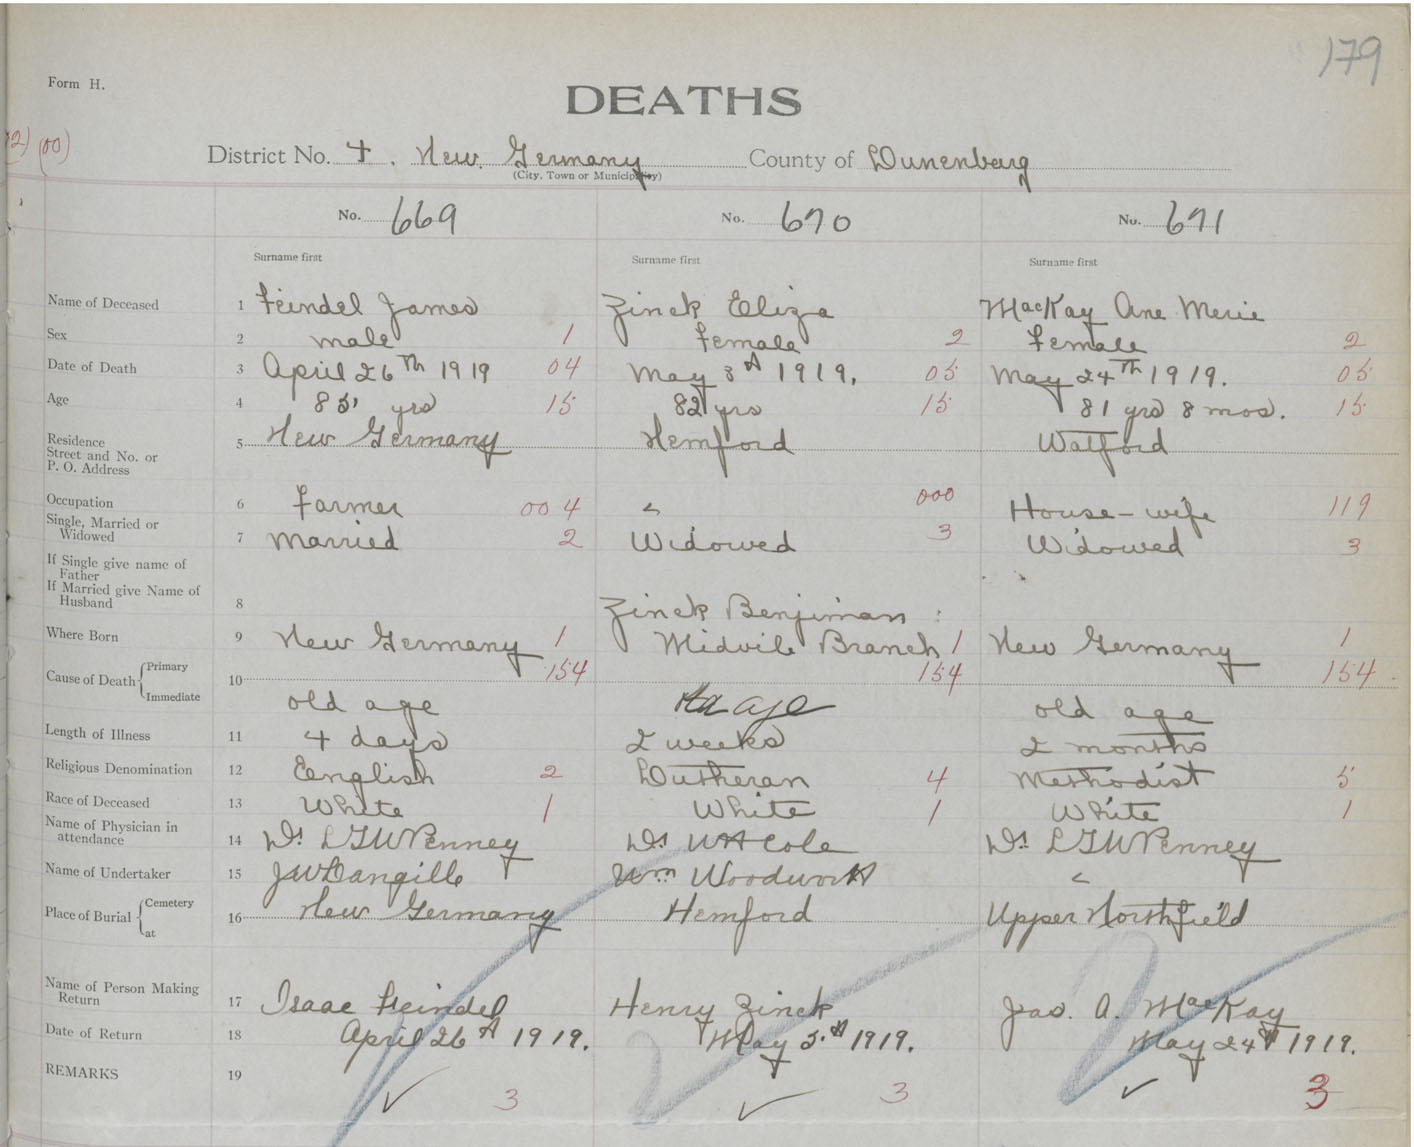 179
Form H.
DEATHS
2) (00)
District No. 4. New Germany County of Lunenburg
(City, Town or Municipality)
No. 669 No. 670 No. 671
Surname first Surname first Surname first
Name of Deceased 1 Feindel James Zinck Eliza MacKay Ane Merie
Sex 2 male 1 Female 2 Female 2
Date of Death 3 April 26th 1919 04 May 3d 1919. 05 May 24th 1919. 05
Age 4 85 yrs 15 82 yrs 15 81 yrs 8 mos. 15
Residence
Street and No. or
P. O. Address 5 New Germany Hemford Watford
Occupation 6 Farmer 00 4 000 House-wife 119
Single, Married or
Widowed 7 Married 2 Widowed 3 Widowed 3
If Single give name of
Father
If Married give Name of
Husband 8 Zinck Benjiman
Where Born 9 New Germany 1 Midvile Branch 1 New Germany 1
Cause of Death Primary 10 154 154 154
Immediate old age age old age
Length of Illness 11 4 days 2 weeks 2 months
Religious Denomination 12 Eenglish 2 Lutheran 4 Methodist 5
Race of Deceased 13 White 1 White 1 White 1
Name of Physician in
attendance 14 Dr LGWPenney Dr WHCole Dr LGWPenney
Name of Undertaker 15 JWLangille Wm Woodwork
Place of Burial Cemetery
at 16 New Germany Hemford Upper Northfield
Name of Person Making
Return 17 Isaac Feindel Henry Zinck Jas. A. MacKay
Date of Return 18 April 26th 1919. May 3.d 1919. May 24th 1919.
REMARKS 19
✓ 3 ✓ 3 ✓ 3